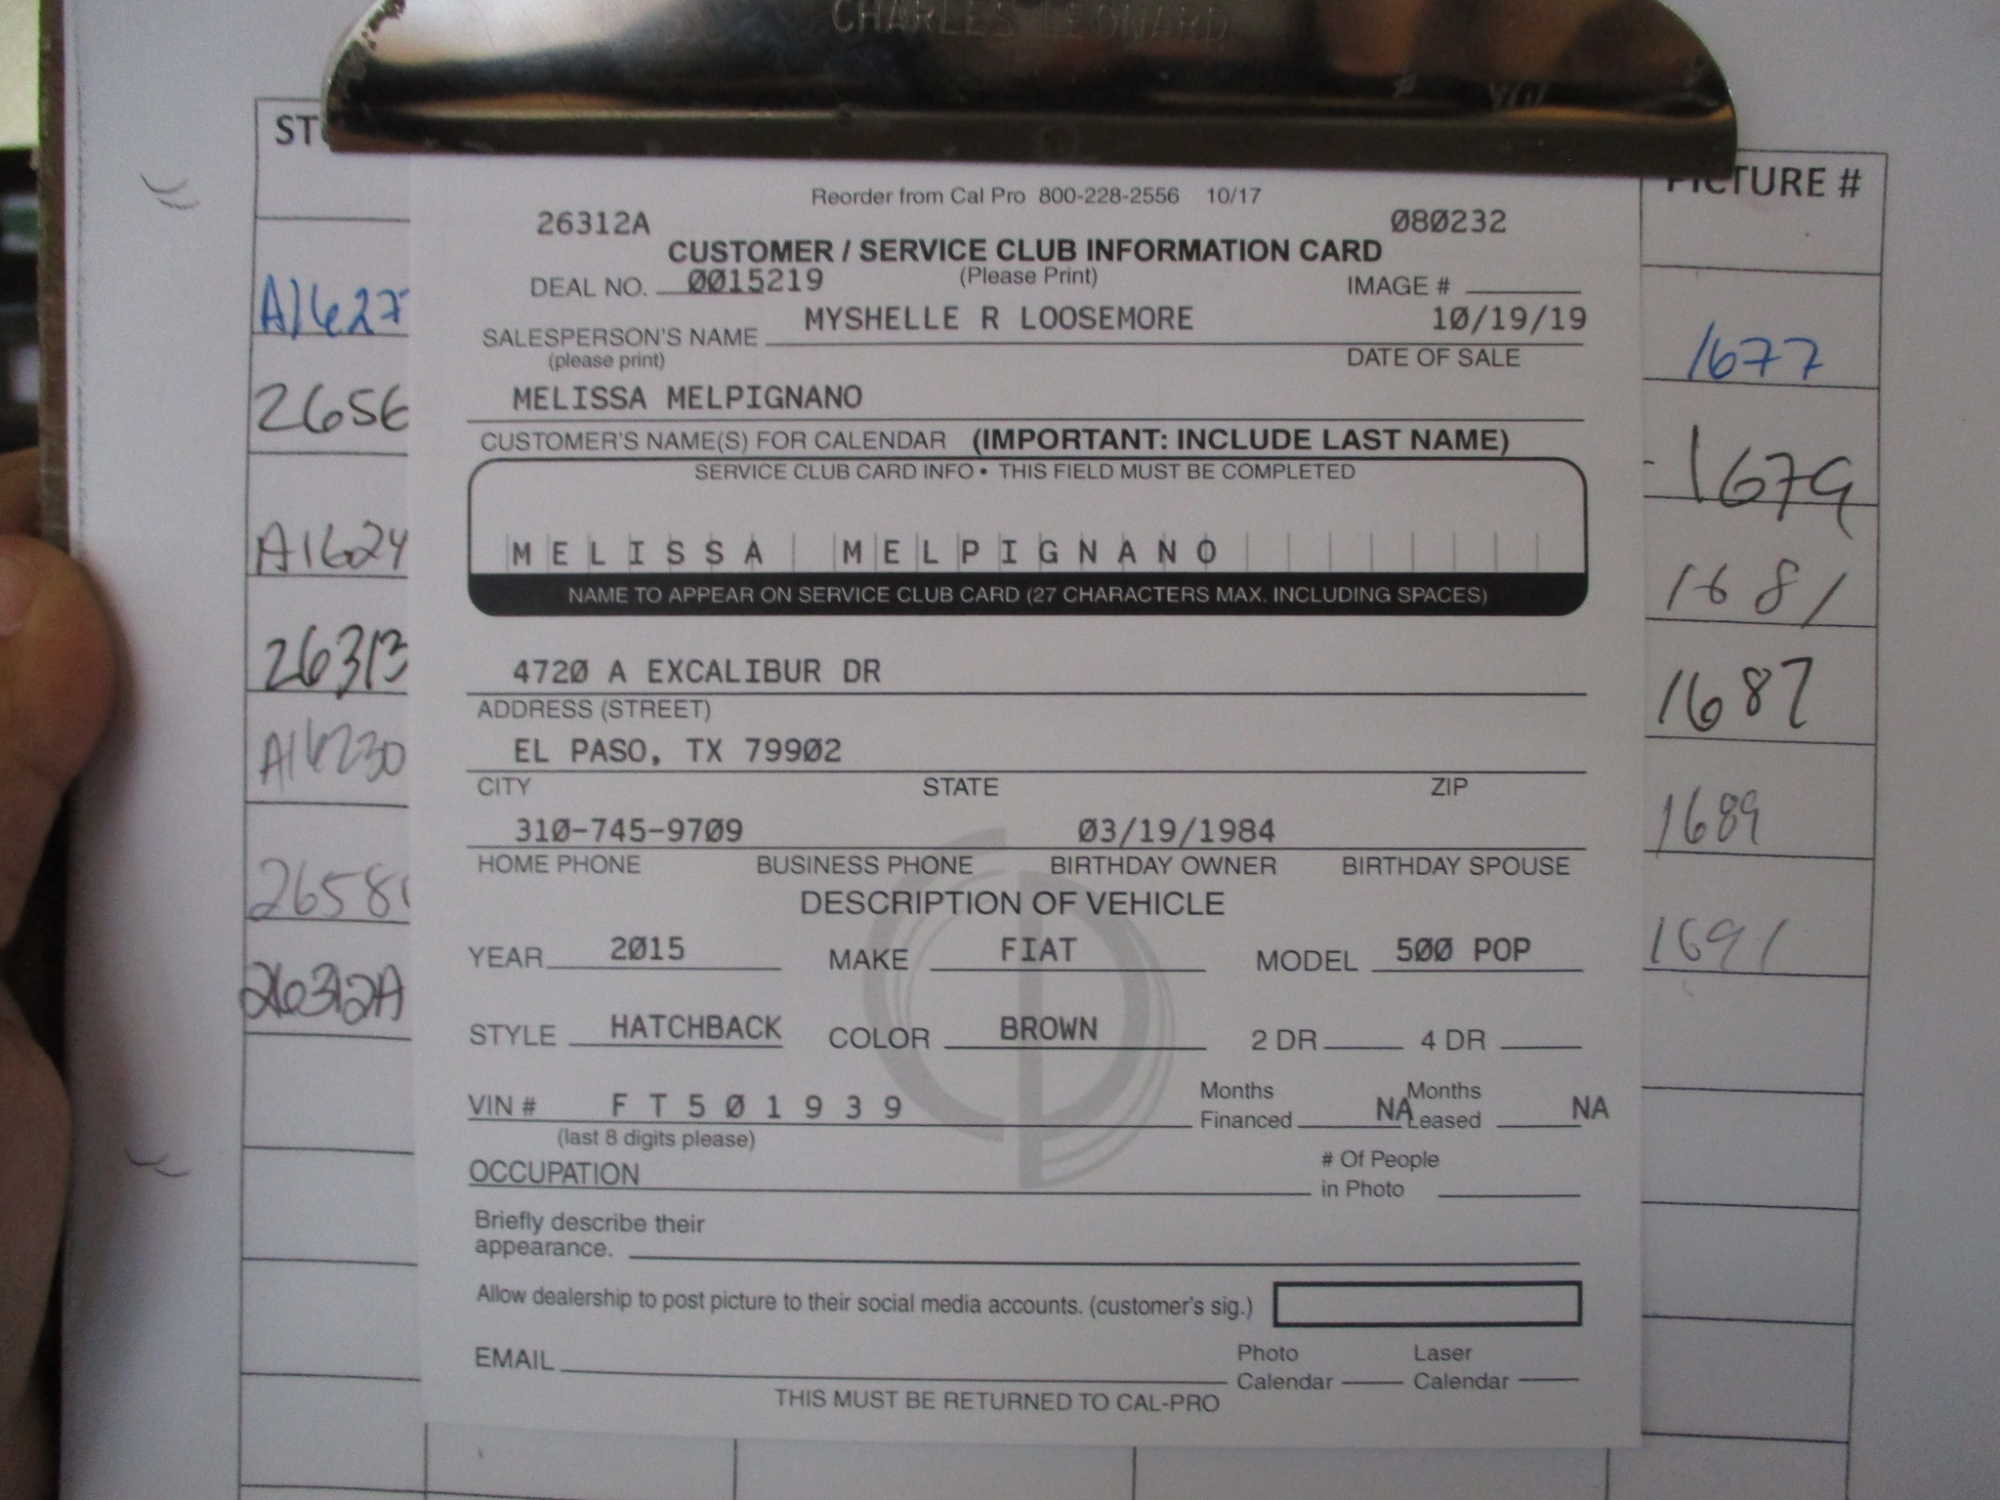 CHARLES LEONARD
PICTURE #
Reorder from Cal Pro 800-228-2556 10/17
26312A 080232
CUSTOMER / SERVICE CLUB INFORMATION CARD
DEAL NO. 0015219 (Please Print) IMAGE #
A1627
MYSHELLE R LOOSEMORE 10/19/19
SALESPERSON'S NAME
(please print) DATE OF SALE
1677
2656
MELISSA MELPIGNANO
CUSTOMER'S NAME(S) FOR CALENDAR (IMPORTANT: INCLUDE LAST NAME)
SERVICE CLUB CARD INFO • THIS FIELD MUST BE COMPLETED
1679
A1624
MELISSA MELPIGNANO
NAME TO APPEAR ON SERVICE CLUB CARD (27 CHARACTERS MAX. INCLUDING SPACES)
1681
26313
4720 A EXCALIBUR DR
ADDRESS (STREET)
1687
EL PASO, TX 79902
CITY STATE ZIP
310-745-9709 03/19/1984
1689
HOME PHONE BUSINESS PHONE BIRTHDAY OWNER BIRTHDAY SPOUSE
2658
DESCRIPTION OF VEHICLE
YEAR 2015 MAKE FIAT MODEL 500 POP
1691
26312A
STYLE HATCHBACK COLOR BROWN 2 DR 4 DR
VIN # FT501939 Months Financed NA Months Leased NA
(last 8 digits please)
OCCUPATION # Of People in Photo
Briefly describe their
appearance.
Allow dealership to post picture to their social media accounts. (customer's sig.)
EMAIL Photo Calendar Laser Calendar
THIS MUST BE RETURNED TO CAL-PRO